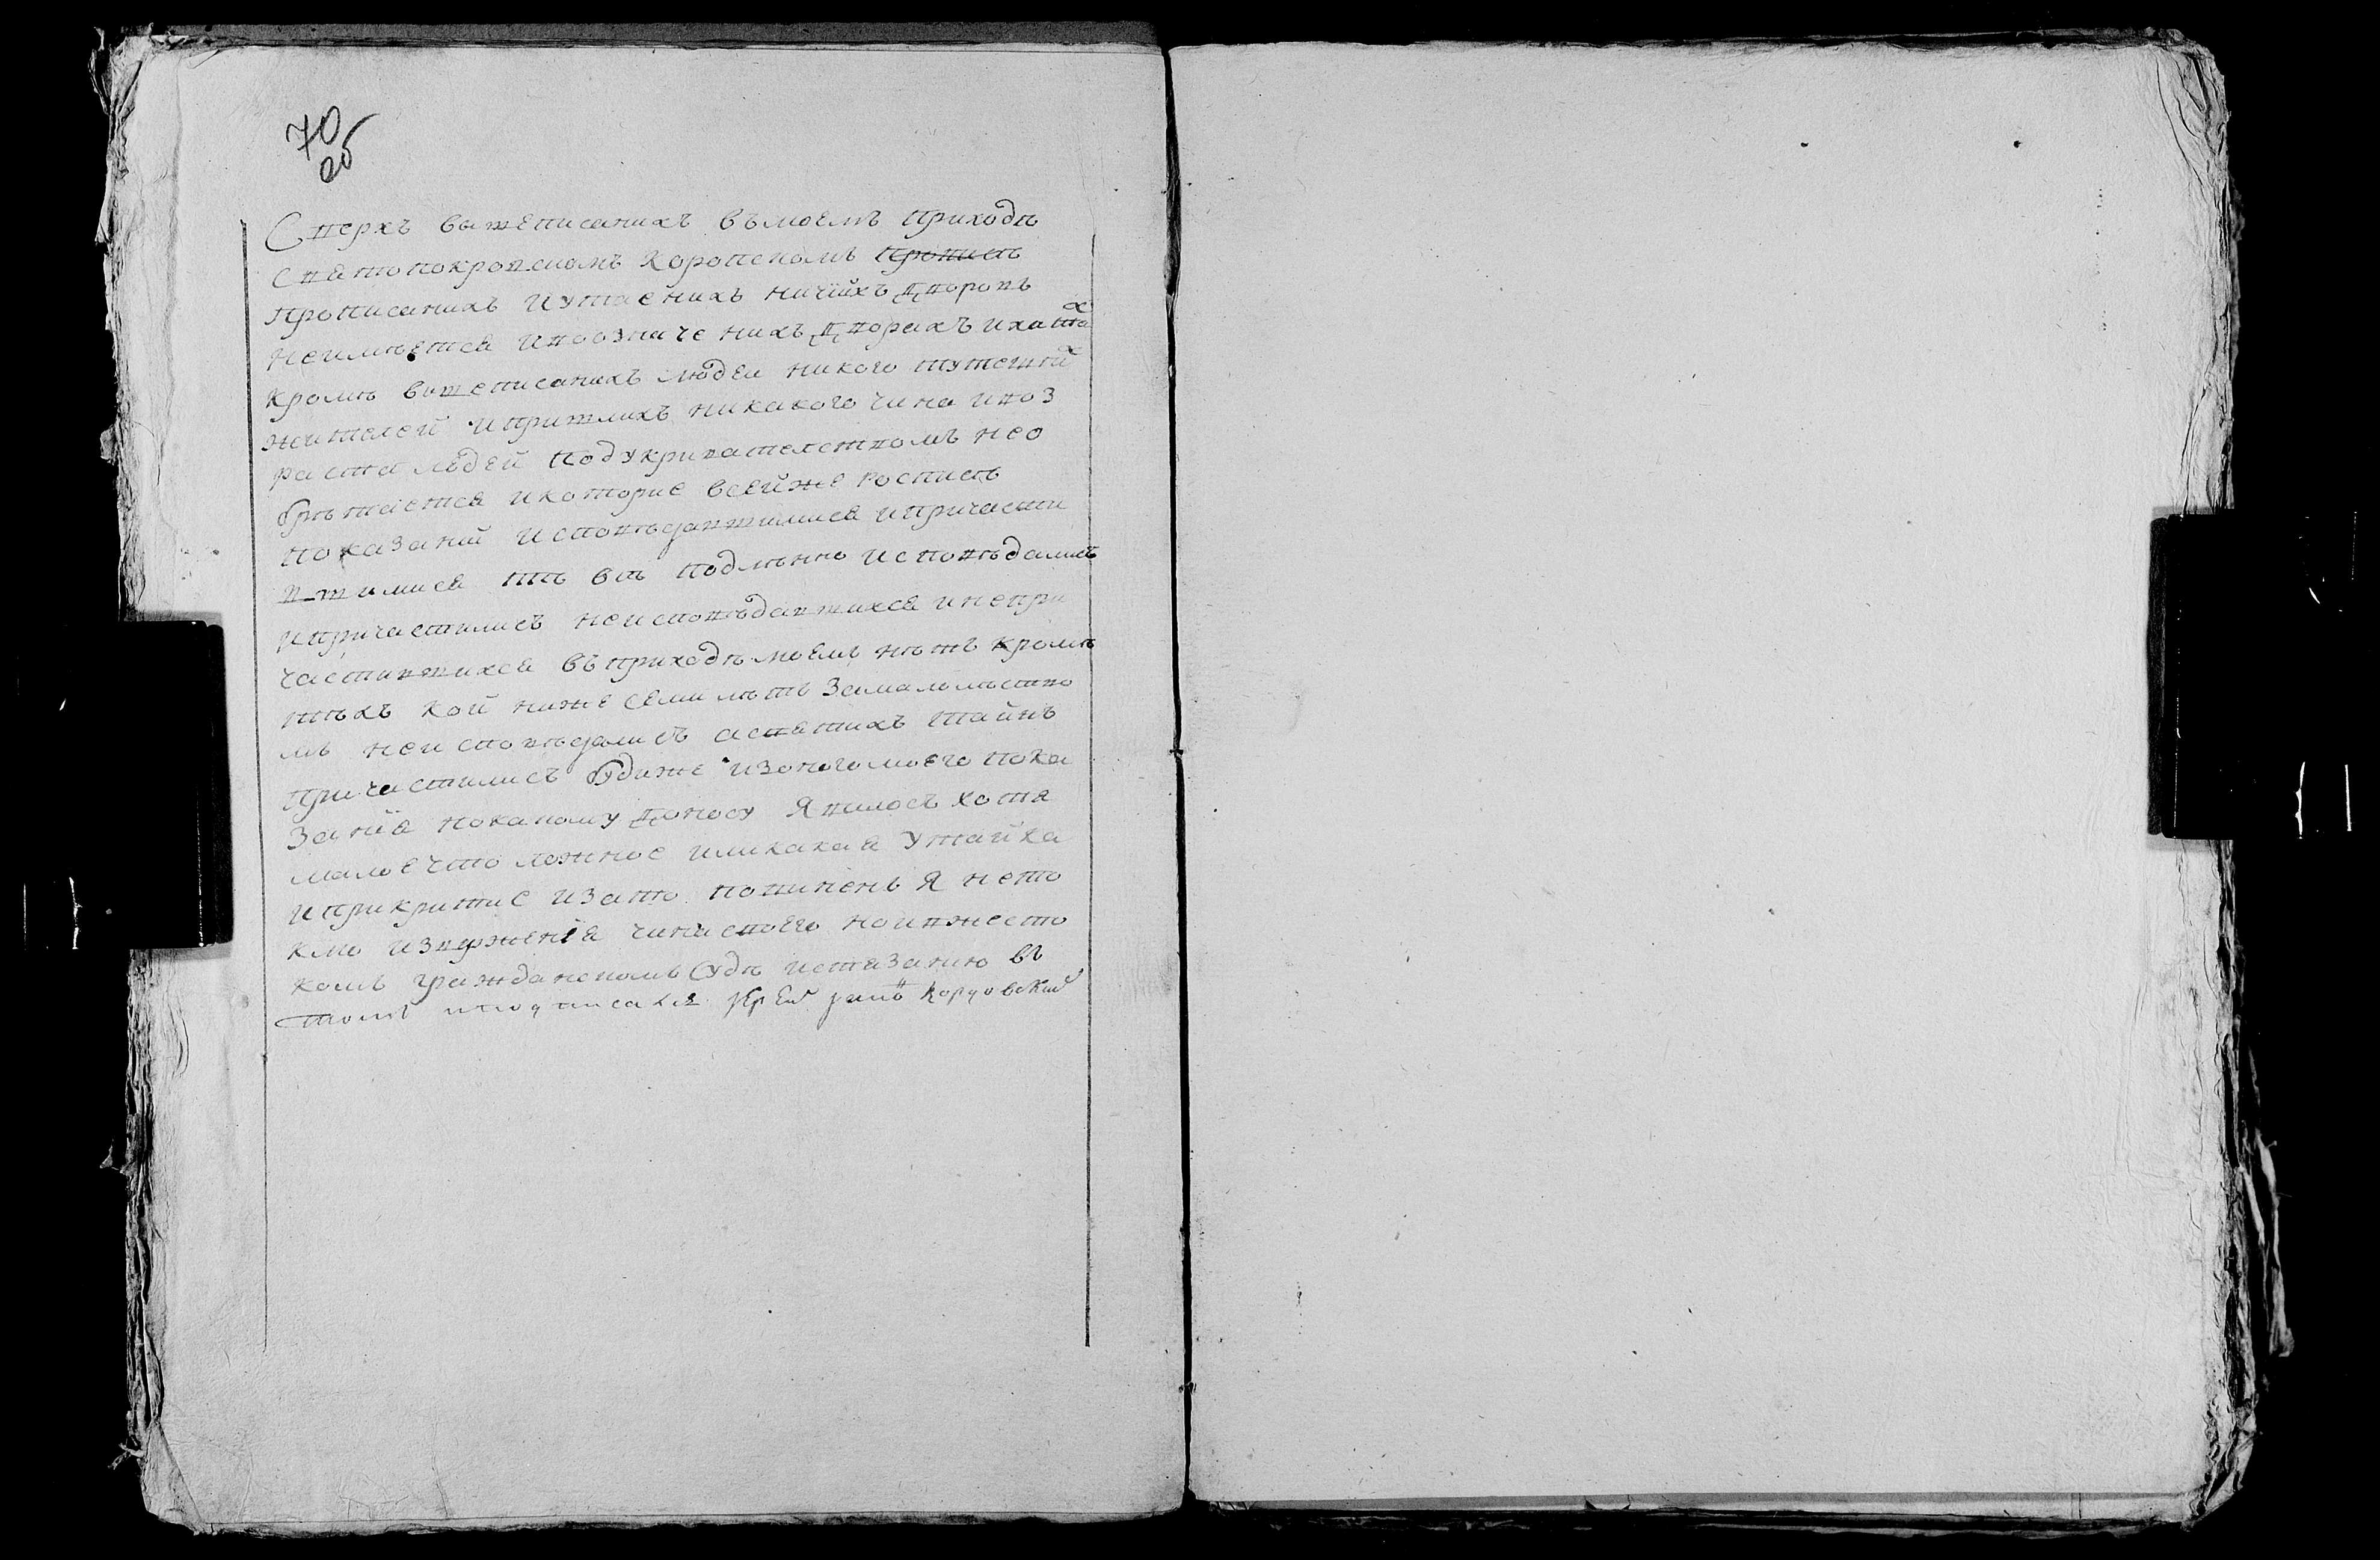 70
об
Сверхъ вышеписанихъ въ моемъ приходѣ
святопокровскомъ Коропскомъ
прописанихъ и утаених ничиихъ дворовъ
неимѣется и в означених дворахъ и хата х
кромѣ вишеписанихъ людеи никого тутешних
жителей и пришлихъ никакого чина и воз
раста людей под укривателством нео
брѣтается и которие в сей же росписѣ
показаний исповѣдавшимися и причасти
вшимися тѣ всѣ подлѣнно исповѣдалисъ
и причастилисъ неисповѣдавшихся и непри
частившихся въ приходѣ моемъ нѣтъ кромѣ
тѣхъ кой ниже семи лѣтъ за малолѣтство
мъ неисповѣдалисъ а святих тайнъ
причастилисъ буди же из оного моего пока
зания по какому доносу явилосъ хотя
малое что ложное или какая утайка
и прикритие и за то повинень я нето
кмо извержения чина своего но и в жесто
комъ гражданскомъ судѣ истязанию въ
томъ и подписался іерей Коруовский